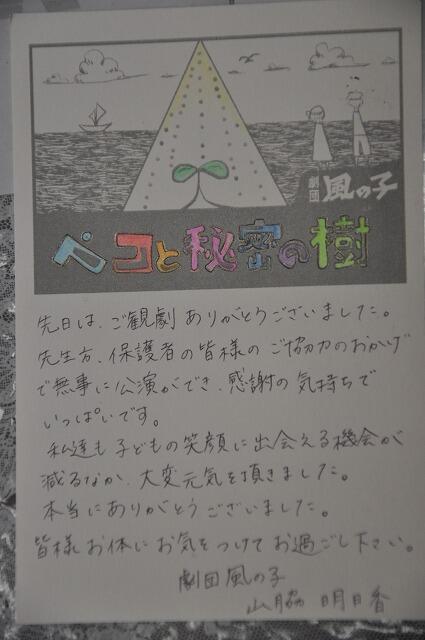 劇団 風の子
ペコと秘密の樹
先日は、ご観劇ありがとうございました。
先生方、保護者の皆様のご協力のおかげ
で無事に公演ができ、感謝の気持ちで
いっぱいです。
私達も子どもの笑顔に出会える機会が
減るなか、大変元気を頂きました。
本当にありがとうございました。
皆様お体にお気をつけてお過ごし下さい。
劇団風の子
山脇 明日香